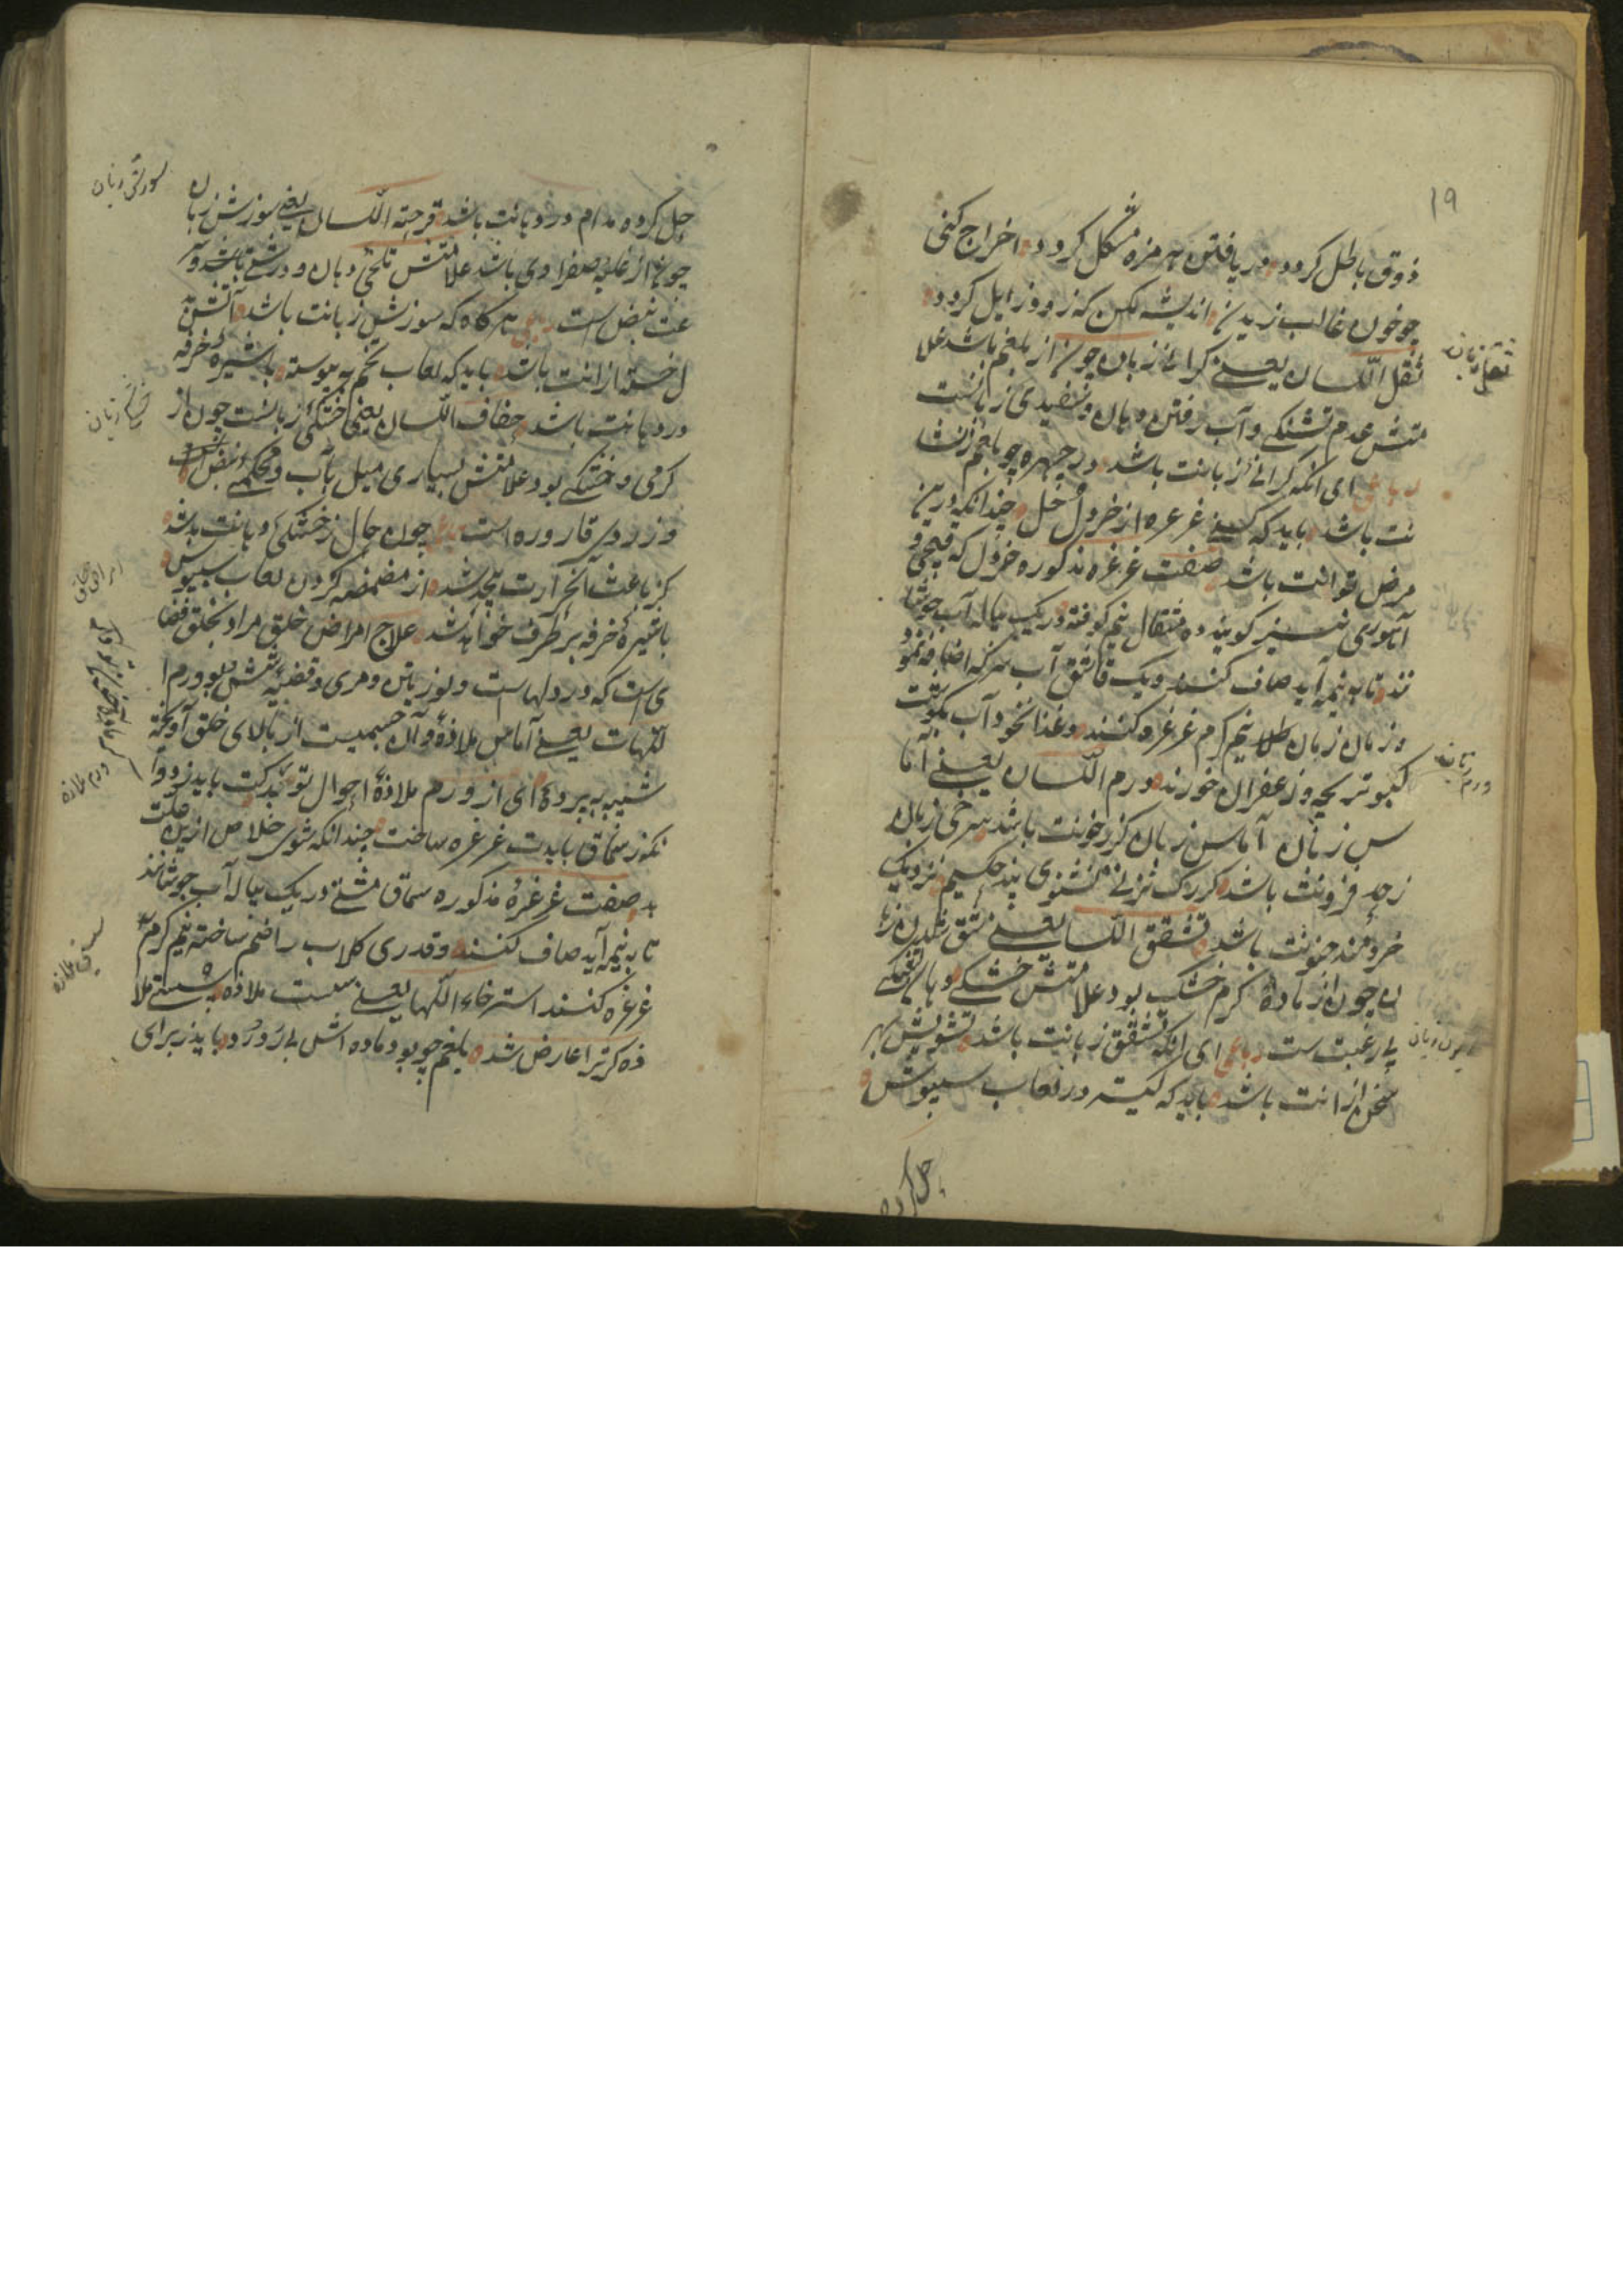 ۱۹
ذوق باطل گردد در یافتن هر مزه مشکل گردد اخراج کنی
چو خون غالب زیدن اندیشه مکن که زود زایل گردد
ثقل زبان
ثقل اللسان یعنی گرانی زبان چون از بلغم باشد علا
متش عدم تشنگی و آب رفتن دهان و سفیدی زبانست
ای آنکه گرانی زبانت باشد در چهره چو بلغم نشا
نت باشد باید که کنی غرغره از خردل خل چندانکه درین
مرض توانت باشد صفت غرغره مذکوره خردل که قیچی و
آهوری نیز گویند ده مثقال نیم کوفته در یک پیاله آب جوشا
نند تا به نیمه آید صاف کنند و یک قاشق آب سرکه اضافه نمو
ده زمان زمان طلا نیم گرم غرغره کنند و غذا نخود آب بگوشت
ورم زبان
کبوتر بچه و زعفران خورند ورم اللسان یعنی آما
س زبان آماس زبان گر زخونت باشد سرخی زبان
زحد فزونت باشد گر رگ نزنی نشنوی پند حکیم نزدیک
خردمند جنونت باشد تشقق اللسان یعنی شق شدن زبا
ن چون از ماده گرم خشک بود علامتش خشکی دهان
بی رغبت ست رباعی ای آنکه تشقق زبانت باشد تشویش بهر
سخن از انت باشد باید که کنی تر در لعاب سبیوش
حل کرده
سوزش زبان
حل کرده مدام در دهانت باشد قرحة اللسان یعنی سوزش زبان
چون از غلبه صفراوی باشد علامتش تلخی دهان و درشتی باشد و
عت نبض است رباعی هرگاه که سوزش زبانت باشد آتش
ل خسته ازانت باشد باید که لعاب تخم به پیوسته با شیره خرفه
خشکی زبان
در دهانت باشد جفاف اللسان یعنی خشکی زبانست چون از
گرمی و خشکی بود علامتش بسیاری میل بآب و محکمی نبض است
و زردی قاروره است رباعی چون حال زخشکی دهانت بد شد
امراض حلق
کز باعث آن حرارت بیحد شد از مضمضه کردن لعاب سبیوش
با شیره خرفه برطرف خواهد شد علاج امراض حلق مراد بحلق فضا
ی است که در دهاست و لوزتین و مری و قصبه شش بود ورم ا
للهات یعنی آماس ملاذه و آن جسمیست از بالای حلق آویخته
ورم ملازه
شبیه به پرده ای از ورم ملاذه احوال تو بد گشت باید زدوا
نکو ز سماق بایدت غرغره ساخت چندانکه شوی خلاص ازین علت
بد صفت غرغره مذکوره سماق مشتی در یک پیاله آب جوشانند
تا به نیمه آید صاف کنند و قدری گلاب را ضم ساخته نیم گرم
سستی ملازه
غرغره کنند استرخاء اللهات یعنی سست ملاذه سستی ملا
ذه گر ترا عارض شده بلغم چو بود ماده اش بی رد و رد باید ز برای